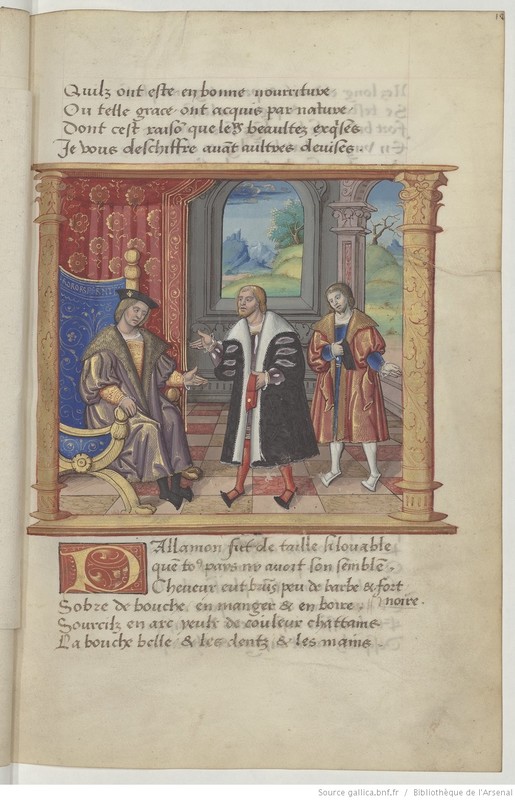 Quilz ont este en bonne nourriture
Ou telle grace ont acquis par nature
Dont cest raisō que les beaultez exq̄ses
Je vous deschiffre auāt aultres deuises.
Pallamon fut de taille si louable
que to9 pays ny auoit son semble.
Cheueur eut brūs peu de barbe & fort
noire.
Sobre de bouche en manger & en boire.
Sourcilz en arc yeulx de couleur chattains
La bouche belle & les dentz & les mains.
Source gallica.bnf.fr / Bibliothèque de l'Arsenal